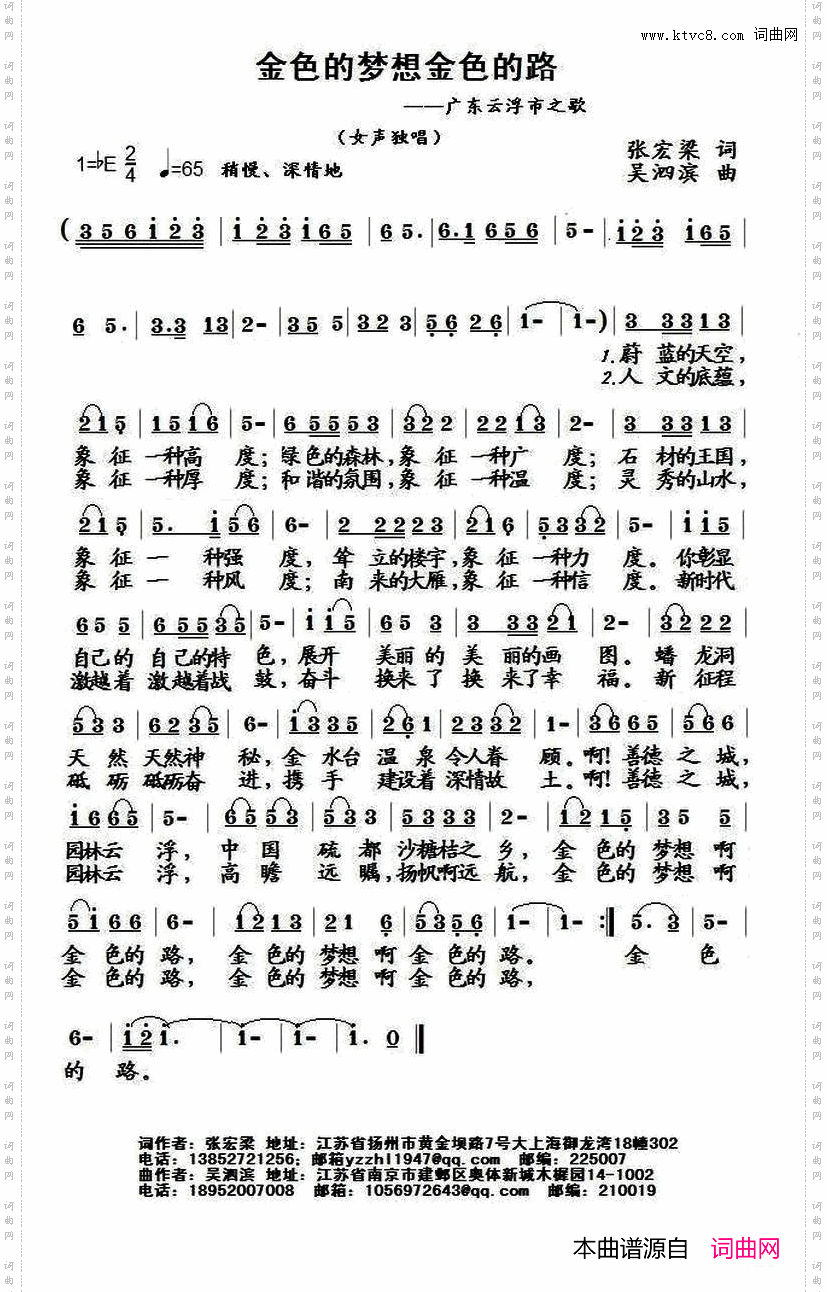 www.ktvc8.com 词曲网
金色的梦想金色的路
——广东云浮市之歌
(女声独唱)
1=♭E 2/4 ♩=65 稍慢、深情地
张宏梁 词
吴泗滨 曲
(3 5 6 i 2 3 | i 2 3 i 6 5 | 6 5. | 6. 1 6 5 6 | 5 - | i 2 3 i 6 5 |
6 5. | 3. 3 1 3 | 2 - | 3 5 5 | 3 2 3 | 5 6 2 6 | i - | i -) | 3 3 3 1 3 |
1.蔚 蓝的天空,
2.人 文的底蕴,
2 1 5 | 1 5 1 6 | 5 - | 6 5 5 5 3 | 3 2 2 | 2 2 1 3 | 2 - | 3 3 3 1 3 |
象 征 一种高 度; 绿色的森林, 象 征 一种广 度; 石 材的王国,
象 征 一种厚 度; 和谐的氛围, 象 征 一种温 度; 灵 秀的山水,
2 1 5 | 5. i 5 6 | 6 - | 2 2 2 2 3 | 2 1 6 | 5 3 3 2 | 5 - | i i 5 |
象 征 一 种强 度, 耸 立的楼宇, 象 征 一种力 度。 你彰显
象 征 一 种风 度; 南 来的大雁, 象 征 一种信 度。 新时代
6 5 5 | 6 5 5 3 5 | 5 - | i i 5 | 6 5 3 | 3 3 3 2 1 | 2 - | 3 2 2 2 |
自己的 自己的特 色, 展开 美丽的 美 丽的画 图。 蟠 龙洞
激越着 激越着战 鼓, 奋斗 换来了 换 来了幸 福。 新 征程
5 3 3 | 6 2 3 5 | 6 - | i 3 3 5 | 2 6 1 | 2 3 3 2 | 1 - | 3 6 6 5 | 5 6 6 |
天 然 天然神 秘, 金 水台 温 泉 令人眷 顾。 啊! 善德 之 城,
砥 砺 砥砺奋 进, 携 手 建设着 深情故 土。 啊! 善德 之 城,
i 6 6 5 | 5 - | 6 5 5 3 | 5 3 3 | 5 3 3 3 | 2 - | i 2 1 5 | 3 5 5 |
园林云 浮, 中 国 硫 都 沙糖桔之 乡, 金 色的 梦想 啊
园林云 浮, 高 瞻 远 瞩, 扬帆啊远 航, 金 色的 梦想 啊
5 i 6 6 | 6 - | 1 2 1 3 | 2 1 6 | 5 3 5 6 | 1 - | 1 - :‖ 5. 3 | 5 - |
金 色的 路, 金 色的 梦想 啊 金 色的 路。 金 色
金 色的 路, 金 色的 梦想 啊 金 色的 路,
6 - | i 2 i. | i - | i - | i. 0 ‖
的 路。
词作者：张宏梁 地址：江苏省扬州市黄金坝路7号大上海御龙湾18幢302
电话：13852721256；邮箱yzzhl1947@qq.com 邮编：225007
曲作者：吴泗滨 地址：江苏省南京市建邺区奥体新城木樨园14-1002
电话：18952007008 邮箱：1056972643@qq.com 邮编：210019
本曲谱源自 词曲网